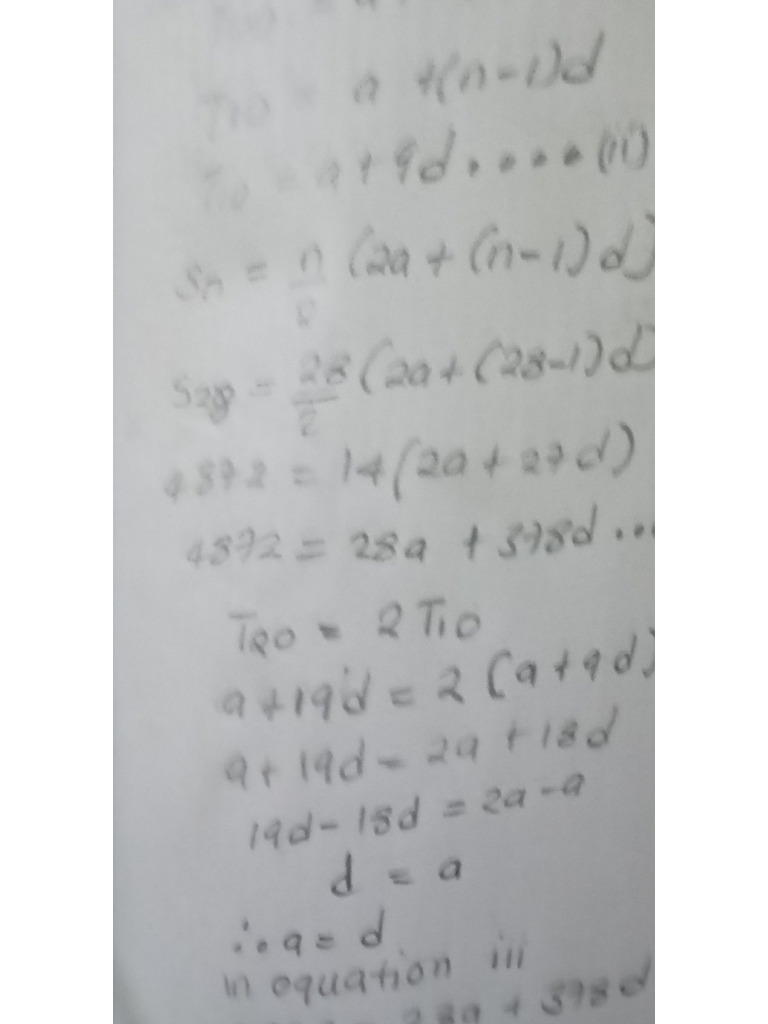 T10 = a +(n-1)d
T10 = a + 9d .... (ii)
Sn = n/2 (2a + (n-1)d)
S28 = 28/2 (2a + (28-1)d)
4872 = 14(2a + 27d)
4872 = 28a + 378d ...
T20 = 2T10
a + 19d = 2(a + 9d)
a + 19d = 2a + 18d
19d - 18d = 2a - a
d = a
∴ a = d
in equation iii
28a + 378d